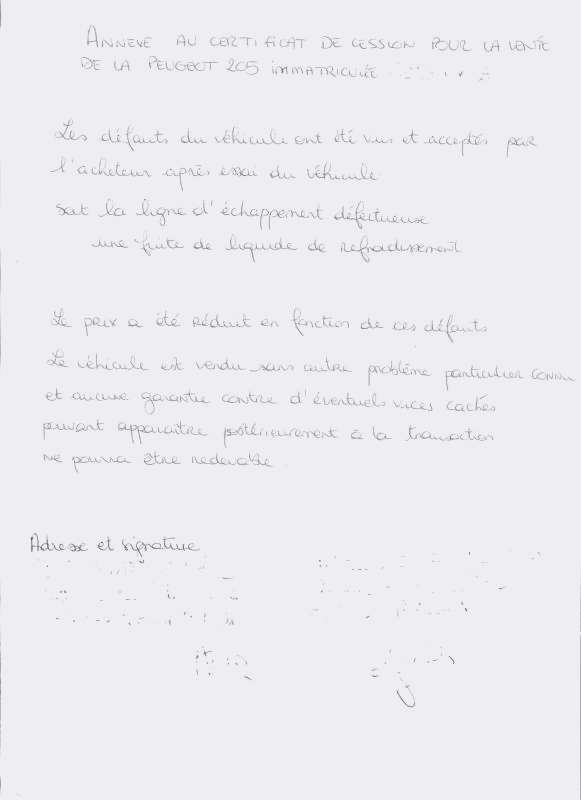 ANNEXE AU CERTIFICAT DE CESSION POUR LA VENTE
DE LA PEUGEOT 205 IMMATRICULÉE
Les défauts du véhicule ont été vus et acceptés par
l'acheteur après essai du véhicule
soit la ligne d'échappement défectueuse
une fuite de liquide de refroidissement
Le prix a été réduit en fonction de ces défauts
Le véhicule est vendu sans autre problème particulier connu
et aucune garantie contre d'éventuels vices cachés
pouvant apparaitre postérieurement à la transaction
ne pourra être redevable.
Adresse et signature